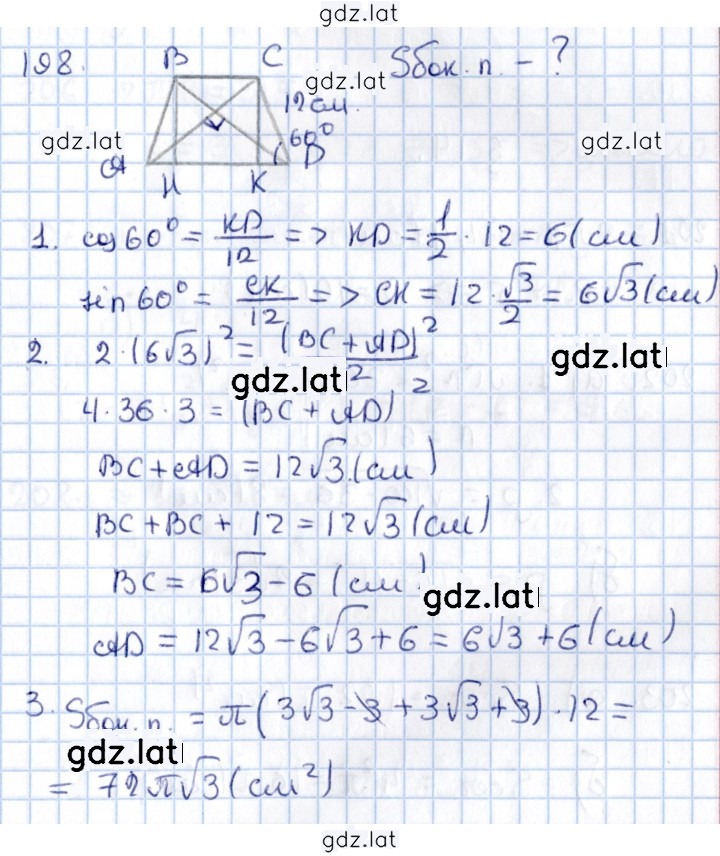 gdz.lat
198. B C Sбок. п. - ?
gdz.lat
12 см
gdz.lat 60° gdz.lat
A H K D
1. cos 60° = KD/12 => KD = 1/2 · 12 = 6 (см)
sin 60° = CK/12 => CK = 12 · √3/2 = 6√3 (см)
2. 2 · (6√3)² = (BC + AD)²/2
gdz.lat gdz.lat
4 · 36 · 3 = (BC + AD)²
BC + AD = 12√3 (см)
BC + BC + 12 = 12√3 (см)
BC = 6√3 - 6 (см)
gdz.lat
AD = 12√3 - 6√3 + 6 = 6√3 + 6 (см)
3. Sбок. п. = π(3√3 - 3 + 3√3 + 3) · 12 =
gdz.lat
= 72π√3 (см²)
gdz.lat